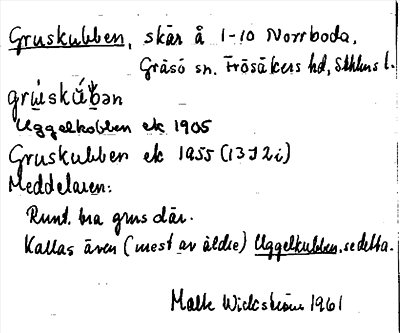 Gruskubben, skär å 1-10 Norrboda,
Gräsö sn. Frösåkers hd, Sthlms l.
grùskúb̥ən
Uggelkobben ek 1905
Gruskubben ek 1955 (13J2i)
Meddelaren:
Runt. bra grus där.
Kallas även (mest av äldre) Uggelkubben, se detta.
Malte Wickström 1961